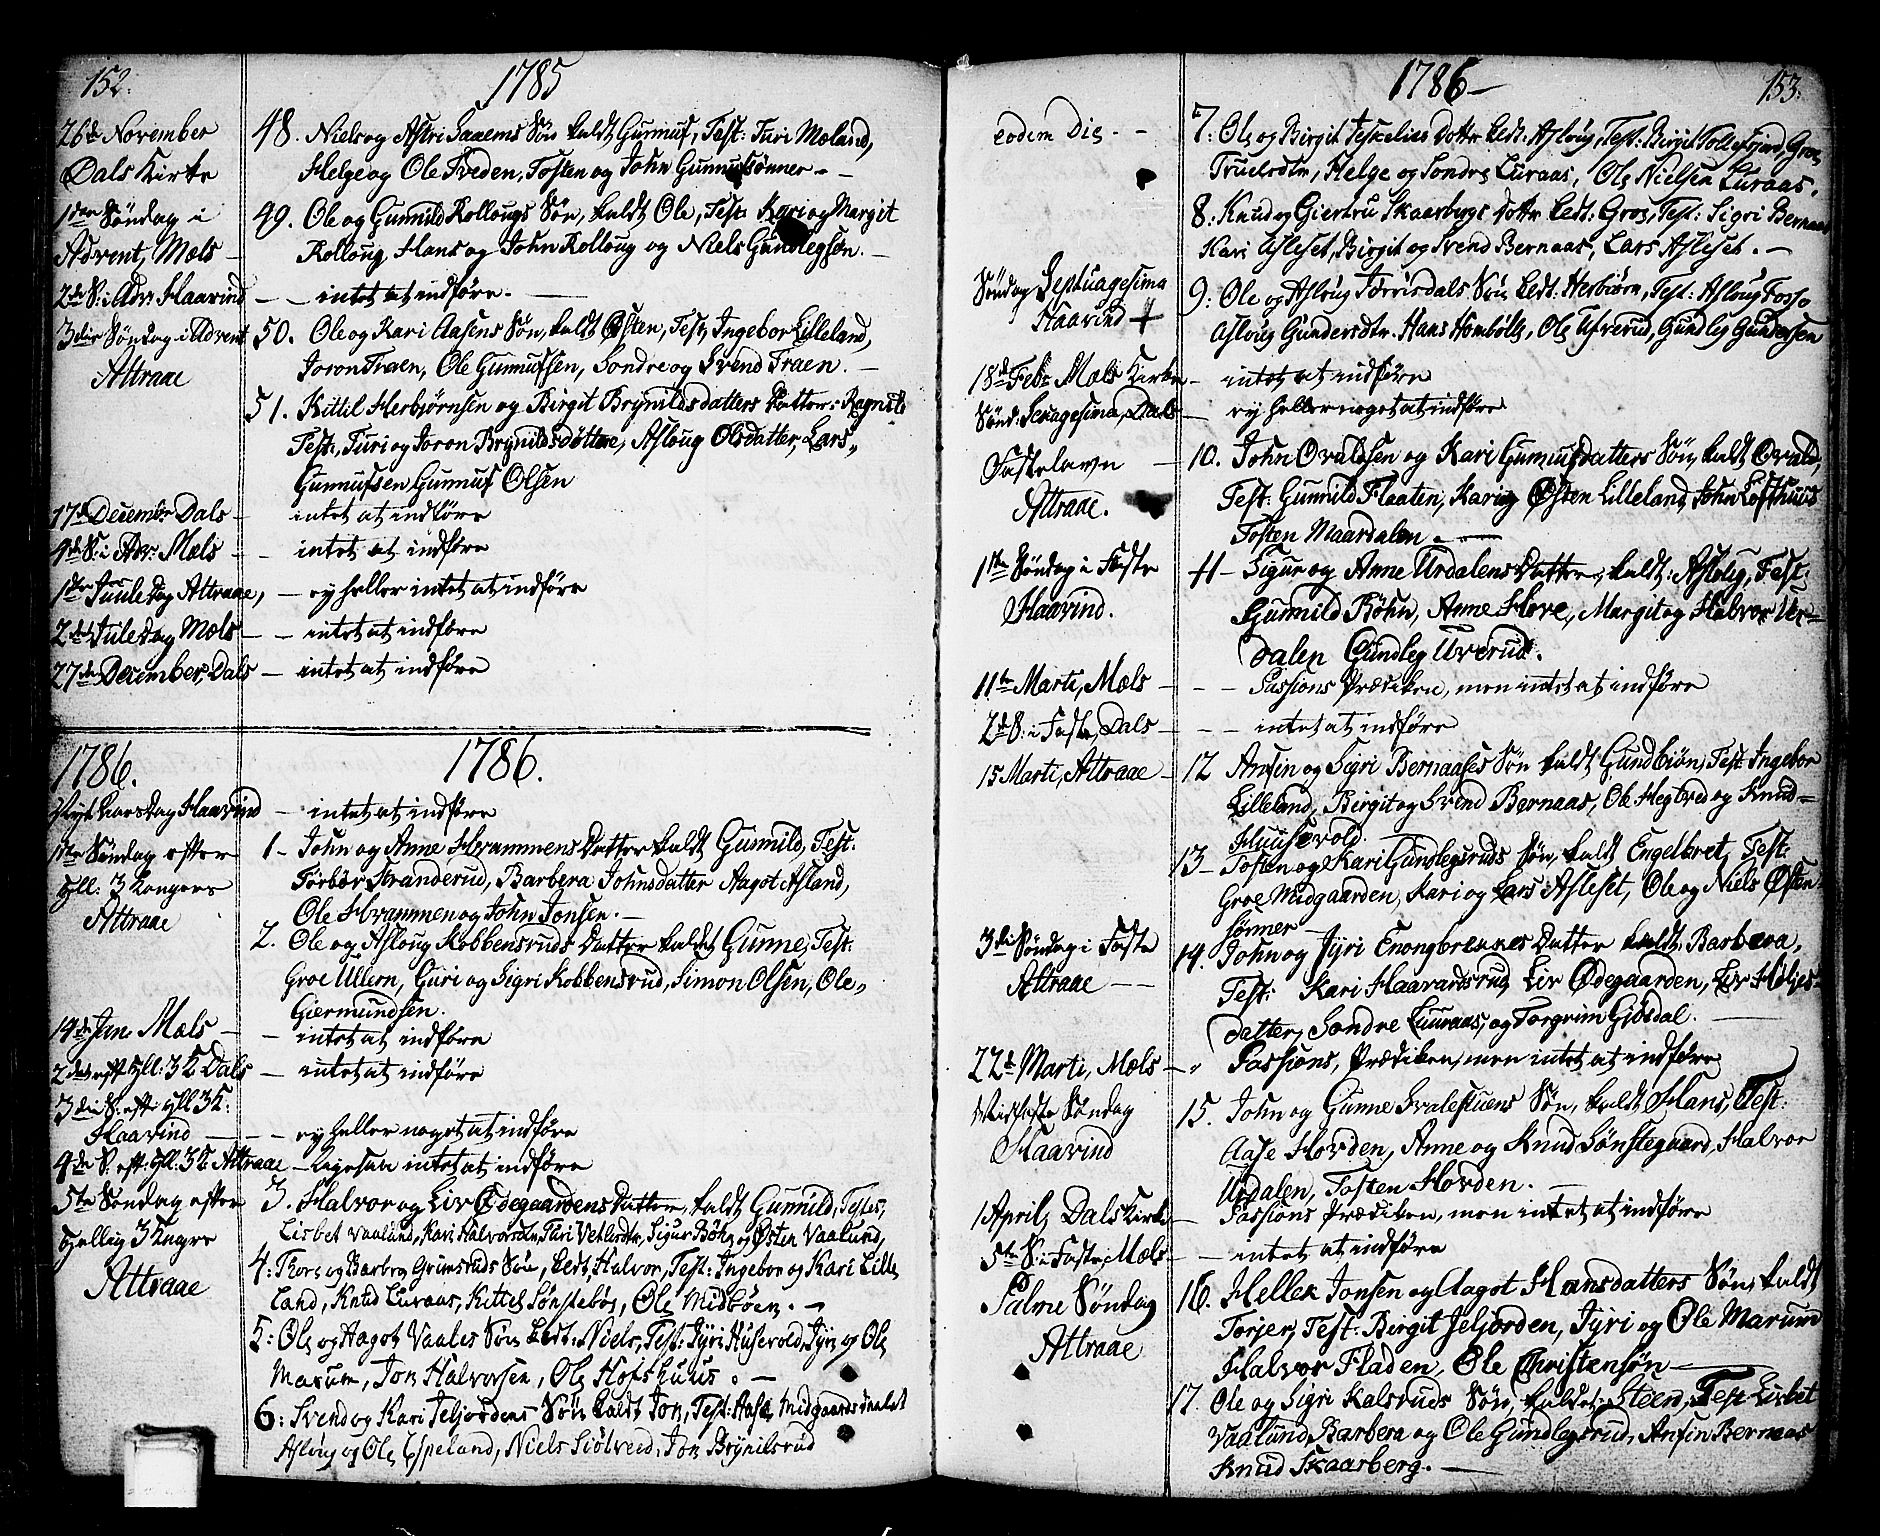 152.
1785
26de November
Dals Kirke
48. Niels og Astri Saaems Søn kaldt Gunnuf, Test: Turi Mæland,
Helge og Ole Sveden, Tosten og John Gunnufsønner. -
1ste Søndag i
Advent, Mæls -
49. Ole og Gunnild Rollougs Søn, kaldt Ole, Test: Kari og Margit
Rolloug, Hans og John Rolloug og Niels Gundlegsøn. -
2de S: i Adv: Haavind - - intet at indføre. -
3die Søndag i Advent
Attraae
50. Ole og Kari Aasens Søn, kaldt Østen, Test: Ingebor Lilleland,
Joron Traen, Ole Gunnufsen, Sondre og Svend Traen. -
51. Kittil Herbjørnsen og Birgit Brynildsdatters Datter: Ragnild
Test: Turi og Joron Brynildsdøttre, Asloug Olsdatter, Lars
Gunnufsen Gunnuf Olsen
17de Decembr Dals - intet at indføre
4de S: i Adv: Mæls - - intet at indføre
1ste Juule Dag Attraae, - ey heller intet at indføre
2den Jule Dag Mæls - - intet at indføre
27de December, Dals - intet at indføre
1786.
1786.
Nyt Aars Dag Haavind - intet at indføre
1ste Søndag efter
hell: 3 Kongers
Attraae
1 - John og Anne Hvammens Datter kaldt Gunnild, Test:
Torbør Stranderud, Barbera Johnsdatter Aagot Asland,
Ole Hvammen og John Jonsen. -
2. Ole og Asloug Kobbensruds Datter kaldet Gunne, Test:
Groe Ullern, Guri og Sigri Kobbensrud, Simon Olsen, Ole
Giermundsen.
14de Jan. Mæls - - intet at indføre
2den eft hell: 3K Dals - intet at indføre
3die S. eft: hell 3K:
Haavind - - - ey heller noget at indføre
4de S. eft: hell: 3K Attraae - ligesaa intet at indføre
5te Søndag efter
hellig 3 Kngre
Attraae
3. Halvor og Liv Ødegaardens Datter, kaldt Gunnild, Testes,
Lisbet Vaaland, Kari Halvorsdtr, Tari Vetlesdtr, Sigur Bøhn og Østen Vaalund,
4: Thore og Barbro Grimsruds Søn, kedt, Halvor, Test: Ingebor og Kari Lille
land, Knud Luraas, Kittel Sønstebøs, Ole Midbøen. -
5: Ole og Aagot Vaales Søn kedt: Niels, Test: Jyri Husevold, Jyri og Ole
Marum, Jon Halvorsen, Ole Hofshuus. -
6: Svend og Kari Jeljordens Søn kaldt Jon, Test: Aase Midgaardsdealet
Aslaug og Ole Espeland, Niels Siølveed, Jon Brynilsrud
1786 -
153.
eodem Die. - -
7: Ole og Birgit Teskelias Dottr kedt: Asloug, Test: Birgit Tollefsjord, Gro
Truelsdtr, Helge og Sondre Luraas, Ole Nielsen Luraas.
8: Knud og Giertru Skaarbergs Dottr kedt: Groe, Test: Sigri Bernaas
Kari Asleset, Birgit og Svend Bernaas, Lars Asleset. -
Søndag Septuagesima
Haavind
9: Ole og Asloug Torrisdals Søn kedt: Herbiørn, Test: Asloug Fosso
Asloug Gundersdtr. Hans Hombølle, Ole Ufverud, Gundleg Gundersen
18de Febr Mæls Kirke - intet at indføre
Sønd: Sexagesima, Dals - ey heller noget at indføre
Fastelavn -
Attraae.
10. John Ovaldsen og Kari Gunnufdatters Søn, kaldt Ovald,
Test: Gunnild Flaaten, Kari og Østen Lilleland, John Lofthuus
Tosten Maardalen. -
1ste Søndag i Faste
Haavind.
11 - Sigur og Anne Urdalens Datter, kaldt: Aslelig, Test:
Gunnild Bøhn, Anne Hove, Margit og Halvor Ur=
dalen Gundleg Uverud.
11te Marti, Mæls - - - Passions Prædiken, men intet at indføre
2de S: i Faste, Dals - - - intet at indføre
15 Marti, Attraae - 12 Anfin og Sigri Bernaases Søn kaldt Gundbiøn, Test: Ingebor
Lilleland, Birgit og Svend Bernaas, Ole Hegbred og Knud=
Huusevold.
13 - Tosten og Kari Gundlegsruds Søn, kaldt Engelbret, Test:
Groe Midgaarden, Kari og Lars Asleset, Ole og Niels Østen=
sønner -
3die Søndag i Faste
Attraae - -
14. John og Jyri Enongbrennes Datter kaldt Barbera,
Test: Kari Haavardsrud, Liv Ødegaarden, Liv Høljes=
datter, Sondre Luuraas, og Torgrim Giøsdal. -
22de Marti, Mæls - " Passions, Prædiken, men intet at indføre
Midfaste Søndag
Haavind
15. John og Gunne Svalestuens Søn, kaldt Hans, Test:
Aase Hovden, Anne og Knud Sønstegaard, Halvor
Urdalen, Tosten Hovden. -
1 April, Dals Kirke - Passions Prædiken, men intet at indføre
5te S: i Faste, Mæls - - intet at indføre
Palme Søndag
Attraae
16. Hellek Jonsen og Aagot Hansdatters Søn, kaldt
Torjer, Test: Birgit Jeljorden, Jyri og Ole Marum
Halvor Fladen, Ole Christensøn -
17. Ole og Sigri Kalsruds Søn, kaldet: Steen, Test: Lisbet
Vaalund, Barbera og Ole Gundlegsrud, Anfin Bernaas
Knud Skaarberg. -